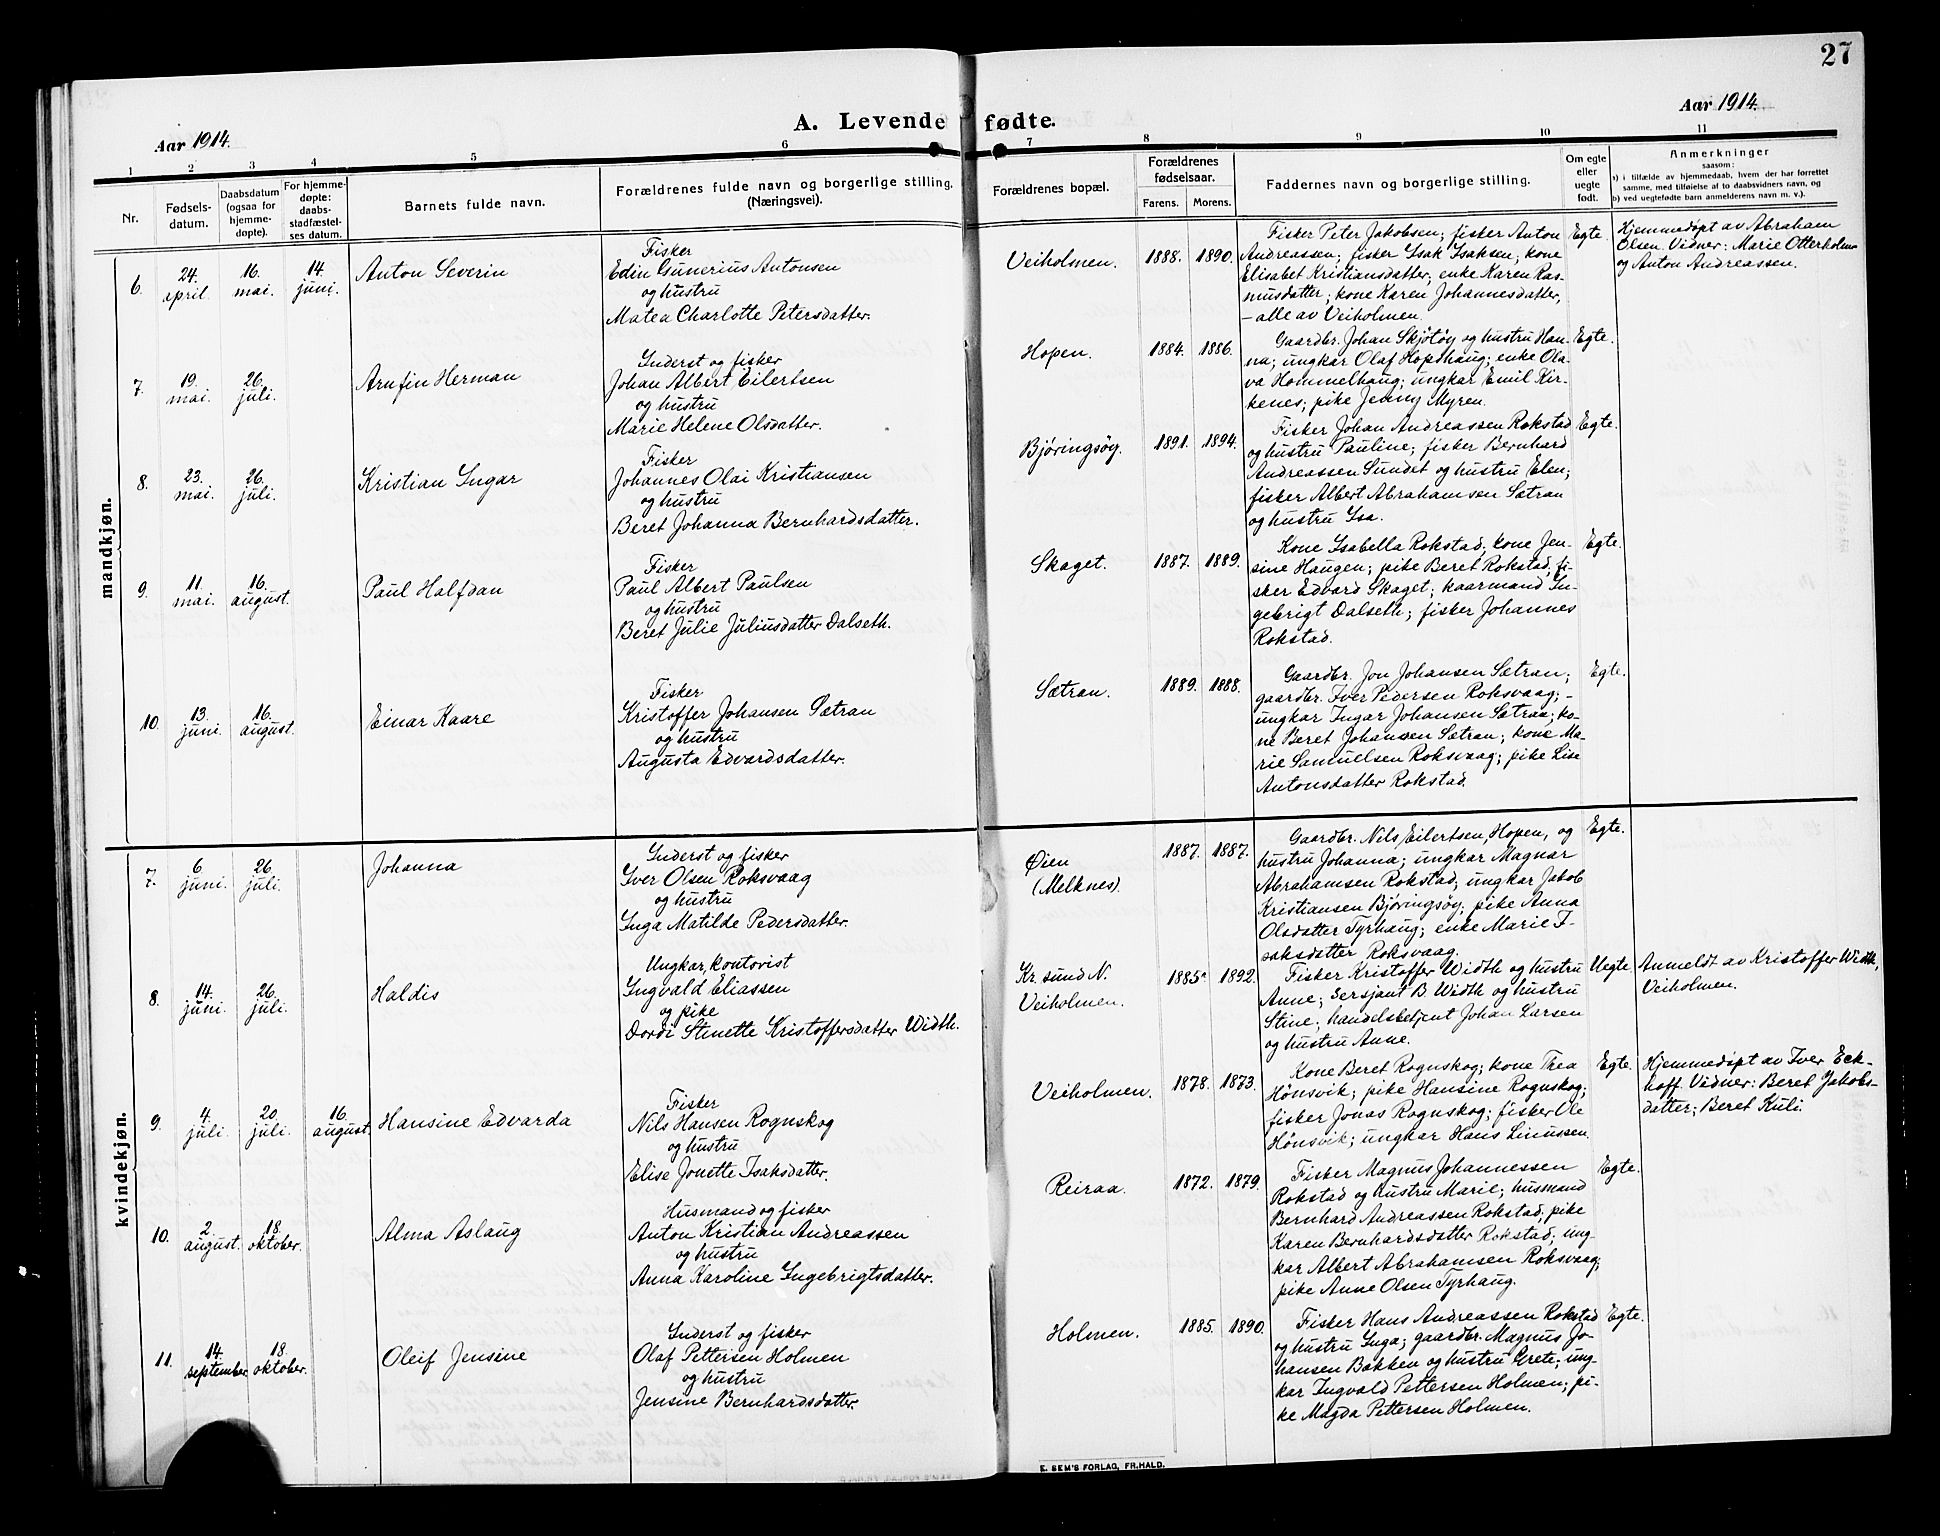 27
A. Levende fødte.
Aar 1914.
Aar 1914.
1 2 3 4 5 6 7 8 9 10 11
Nr.
Fødsels-
datum.
Daabsdatum
(ogsaa for
hjemme-
døpte).
For hjemme-
døpte:
daabs-
stadfæstel-
ses datum.
Barnets fulde navn.
Forældrenes fulde navn og borgerlige stilling.
(Næringsvei).
Forældrenes bopæl.
Forældrenes
fødselsaar.
Farens. Morens.
Faddernes navn og borgerlige stilling.
Om egte
eller
uegte
født.
Anmerkninger
saasom:
a) i tilfælde av hjemmedaab, hvem der har forrettet
samme, med tilføielse af to daabsvidners navn, og
b) ved uegtefødte barn anmelderens navn m. v.).
mandkjøn.
6. 24. april. 16. mai. 14. juni. Anton Severin
Fisker
Edin Gunerius Antonsen
og hustru
Matea Charlotte Petersdatter.
Veiholmen. 1888. 1890.
Fisker Peter Jakobsen; fisker Anton
Andreassen; fisker Isak Isaksen; kone
Elisabet Kristiansdatter; enke Karen Ras-
musdatter; kone Karen Johannesdatter,
- alle av Veiholmen.
Egte.
Hjemmedøpt av Abraham
Olsen. Vidner: Marie Otterholm
og Anton Andreassen.
7. 19. mai. 26. juli. Arnfin Herman
Inderst og fisker
Johan Albert Eilertsen
og hustru
Marie Helene Olsdatter.
Hopen. 1884. 1886.
Gaardbr. Johan Skjøtøy og hustru Han-
na; ungkar Olaf Hopshaug; enke Ola-
va Hommelhaug; ungkar Emil Kir-
kenes; pike Jenny Myren.
Egte.
8. 23. mai. 26. juli. Kristian Ingar
Fisker
Johannes Olai Kristiansen
og hustru
Beret Johanna Bernhardsdatter.
Bjøringsøy. 1891. 1894.
Fisker Johan Andreassen Rokstad
og hustru Pauline; fisker Bernhard
Andreassen Sundet og hustru Elen;
fisker Albert Abrahamsen Sætran
og hustru Isa.
Egte.
9. 11. mai. 16. august. Paul Halfdan
Fisker
Paul Albert Paulsen
og hustru
Beret Julie Juliusdatter Dalseth.
Skaget. 1887. 1889.
Kone Isabella Rokstad; kone Jen-
sine Haugen; pike Beret Rokstad, fi-
sker Edvard Skaget; kaarmand In-
gebrigt Dalseth; fisker Johannes
Rokstad.
Egte.
10. 13. juni. 16. august. Einar Kaare
Fisker
Kristoffer Johansen Sætran
og hustru
Augusta Edvardsdatter.
Sætran. 1889. 1888.
Gaardbr. Jon Johansen Sætran;
gaardbr. Iver Pedersen Roksvaag; -
ungkar Ingar Johansen Sætran; ko-
ne Beret Johansen Sætran; kone Ma-
rie Samuelsen Roksvaag; pike Lise
Antonsdatter Rokstad.
Egte.
kvindekjøn.
7. 6 juni. 26. juli. Johanna
Inderst og fisker
Iver Olsen Roksvaag
og hustru
Inga Matilde Pedersdatter.
Øien
(Melknes).
1887. 1887.
Gaardbr. Nils Eilertsen, Hopen, og
hustru Johanna; ungkar Magnar
Abrahamsen Rokstad; ungkar Jakob
Kristiansen Bjøringsøy; pike Anna
Olsdatter Tyrhaug; enke Marie I-
saksdatter Roksvaag.
Egte.
8. 14. juni. 26. juli. Haldis
Ungkar, kontorist
Ingvald Eliassen
og pike
Dordi Stinette Kristoffersdatter Width.
Kr.sund N.
Veiholmen.
1885. 1892.
Fisker Kristoffer Width og hustru
Anne; sersjant B. Width og hustru
Stine; handelsbetjent Johan Larsen
og hustru Anne.
Uegte.
Anmeldt av Kristoffer Width,
Veiholmen.
9. 4. juli. 20. juli. 16. august. Hansine Edvarda
Fisker
Nils Hansen Rognskog
og hustru
Elise Jonette Isaksdatter.
Veiholmen. 1878. 1873.
Kone Beret Rognskog; kone Thea
Hønsvik; pike Hansine Rognskog;
fisker Jonas Rognskog; fisker Ole
Hønsvik; ungkar Hans Linussen.
Egte.
Hjemmedøpt av Iver Eck-
hoff. Vidner: Beret Jakobs-
datter; Beret Kuli.
10. 2. august. 18. oktober. Alma Aslaug
Husmand og fisker
Anton Kristian Andreassen
og hustru
Anna Karoline Ingebrigtsdatter.
Reiraa. 1872. 1879.
Fisker Magnus Johannessen
Rokstad og hustru Marie; husmand
Bernhard Andreassen Rokstad; pike
Karen Bernhardsdatter Rokstad; ung-
kar Albert Abrahamsen Roksvaag;
pike Anne Olsen Tyrhaug.
Egte.
11. 14. september. 18. oktober. Oleif Jensine
Inderst og fisker
Olaf Pettersen Holmen
og hustru
Jensine Bernhardsdatter.
Holmen. 1885. 1890.
Fisker Hans Andreassen Rokstad
og hustru Inga; gaardbr. Magnus Jo-
hansen Bakken og hustru Grete; ung-
kar Ingvald Pettersen Holmen; pi-
ke Magda Pettersen Holmen.
Egte.
E. SEM'S FORLAG, FR.HALD.